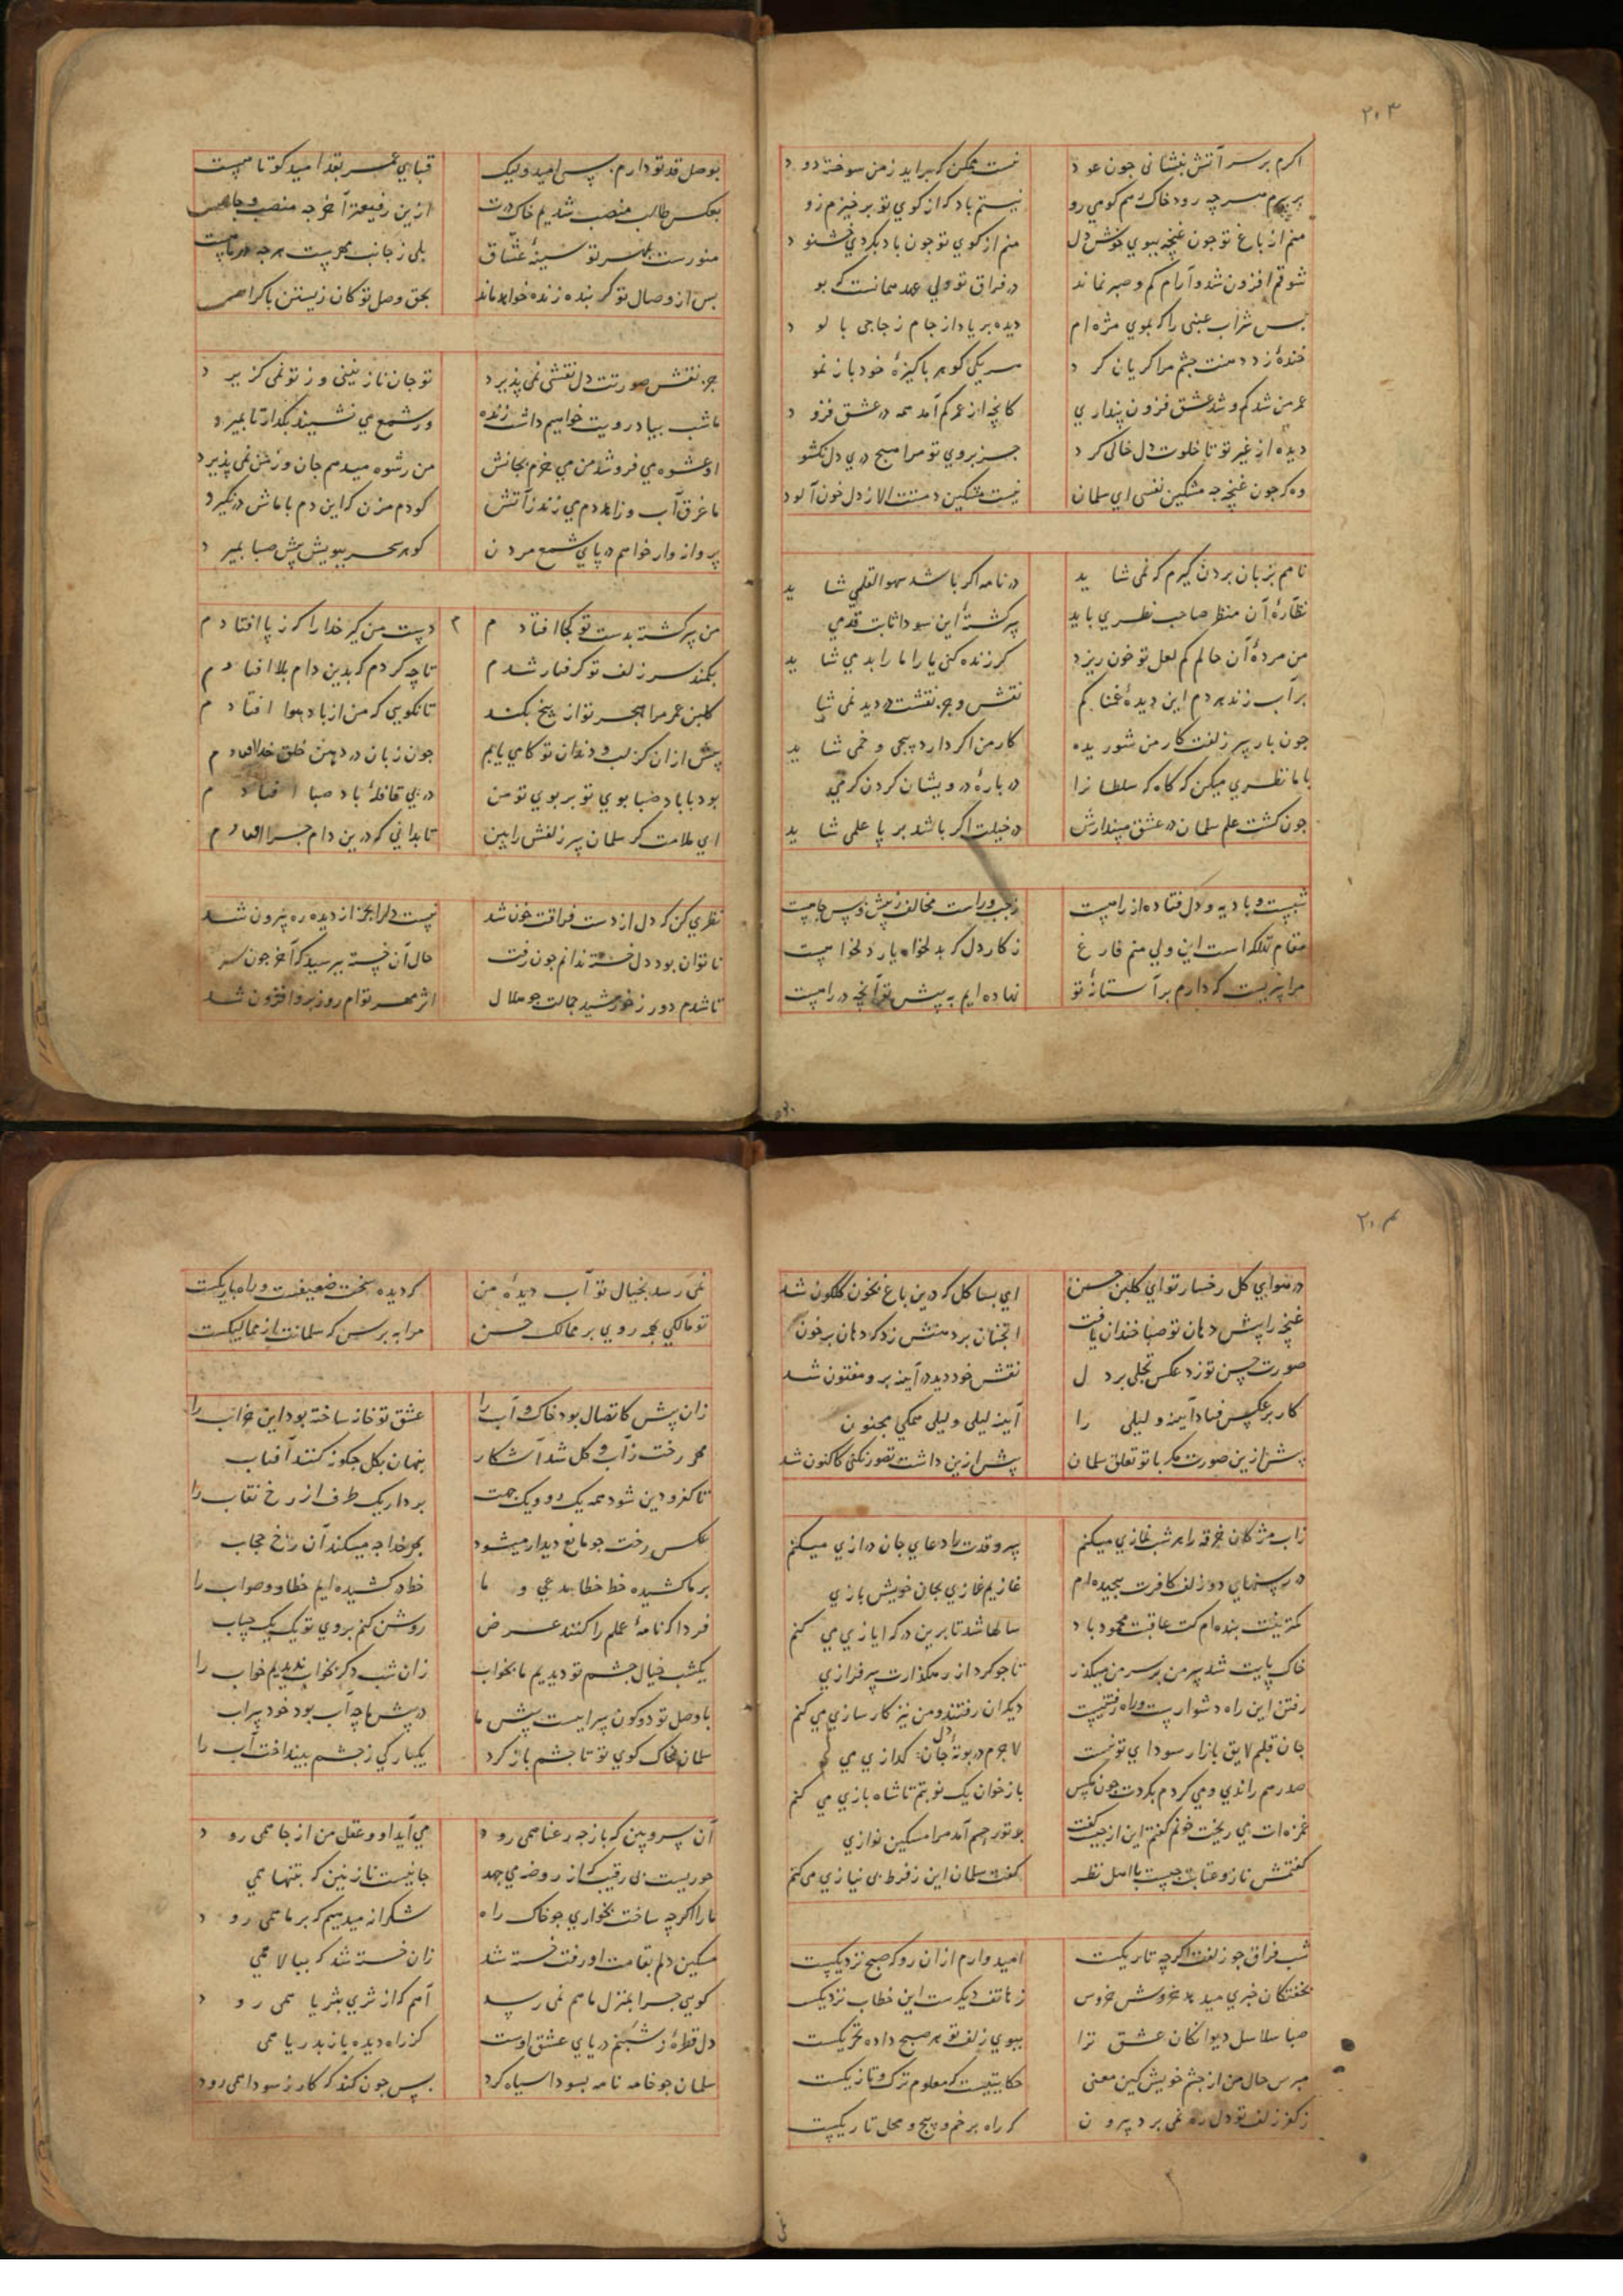 ۲۰۳
اکرم بر سر آتش بنشانی جون عود
نیست ممکن که براید ز من سوخته دود
بر سرم هرچه رود خاک رهم کو می رو
نیستم باد که از کوی تو برخیزم زود
منم از باغ تو جون غنچه ببوی خوش دل
منم از کوی تو جون باد بکردی خشنود
شوقم افزون شد و آرام کم و صبر نماند
در فراق تو ولی عهد همانست که بود
بس شراب عنبی را که بموی مژه ام
دیده بر یاد از جام زجاجی بالود
خنده زد دهنت جشم مرا کریان کرد
هر یکی کوهر باکیزه خود باز نمود
عمر من شد کم و شد عشق فزون پنداری
کانچه از عمر کم آمد همه در عشق فزود
دیده از غیر تو تا خلوت دل خالی کرد
جز بروی تو مرا هیچ دری دل نکشود
وه که جون غنچه جه مشکین نفسی ای سلمان
نیست مشکین دمت الا ز دل خون آلود
نامم بزبان بردن کیرم که نمی شاید
در نامه اکر باشد سهو القلمی شاید
نظاره آن منظر صاحب نظری باید
سرکشته این سودا ثابت قدمی
من مرده آن حالم کم لعل تو خون ریزد
کر زنده کنی یارا ما را بدمی شاید
بر آب زند هر دم این دیده غمناکم
نقش و جز نقشت در دید نمی شاید
جون بار سر زلفت کار من شوریده
کار من اکر دارد پیچی و خمی شاید
با ما نظری میکن که کاه که سلطانرا
در باره درویشان کردن کرمی
جون کشت علم سلمان در عشق مپندارش
در خیلت اکر باشد بر پا علمی شاید
شبیست و بادیه و دل فتاده از راهیست
ز جب و راست مخالف ز پیش و پس جاهیست
مقام تهلکه است این ولی منم فارغ
ز کار دل که بدلخواه یار دلخواهیست
مرا سریست که دارم بر آستانه تو
نهاده ایم به پیش تو آنچه در راهیست
بوصل قد تو دارم بسی امید ولیک
قبای عمر بقد امید کوتاهیست
بعکس طالب منصب شدیم خاک درت
ازین رفیعتر آخر جه منصب و جاهیست
منورست بمهر تو سینه عشاق
بلی ز جانب مهریست هرجه در ماهیست
بس از وصال تو کر بنده زنده خواهد ماند
بحق وصل تو کان زیستن باکراهیست
جز نقش صورتت دل نقشی نمی پذیرد
تو جان نازنینی و ز تو نمی کزیرد
ما شب بیاد رویت خواهیم داشت زنده
ور شمع می نشیند بکذار تا بمیرد
او عشوه می فروشد من می خرم بجانش
من رشوه میدهم جان و ز من نمی پذیرد
ما غرق آب و زاهد دم می زند ز آتش
کو دم مزن که این دم با ماش در نکیرد
پروانه وار خواهم در پای شمع مردن
کو هر سحر ببویش پیش صبا بمیرد
من سرکشته بدست تو کجا افتادم
دست من کیر خدا را که ز پا افتادم
بکمند سر زلف تو کرفتار شدم
تا چه کردم که بدین دام بلا افتادم
کلبن عمر مرا هجر تو از بیخ بکند
تا نکویی که من از باد هوا افتادم
پیش از ان کز لب و دندان تو کامی یابم
جون زبان در دهن خلق خدا افتادم
بود با باد صبا بوی تو بر بوی تو من
در پی قافله باد صبا افتادم
ای ملامت کر سلمان سر زلفش را بین
تا بدانی که درین دام جرا افتادم
نظری کن که دل از دست فراقت خون شد
نیست دلرا بجز از دیده ره بیرون شد
ناتوان بود دل خسته ندانم جون رفت
حال آن خسته بپرسید که آخر جون شد
تا شدم دور ز خورشید جمالت جو هلال
اثر مهر توام روز بروز افزون شد
۲۰۴
در هوای کل رخسار تو ای کلبن حسن
ای بسا کل که درین باغ بخون کلکون شد
غنچه را پیش دهان تو صبا خندان یافت
انجنان بر دهنش زد که دهان بر خون
صورت حسن تو زد عکس تجلی بر دل
نقش خود دید در آینه برو مفتون شد
کار بر عکس فتاد آینه و لیلی را
آینه لیلی و لیلی همکی مجنون
پیش ازین صورت مکر با تو تعلق سلمان
پیش ازین داشت تصور نکنی کاکنون شد
زاب مژکان خرقه را هر شب نمازی میکنم
بر و قدت را دعای جان درازی میکنم
در رسنهای دو زلف کافرت پیچیده ام
غازیم غازی بجان خویش بازی
کمترینت بنده ام کت عاقبت محمود باد
سالها شد تا برین درکه ایازی می کنم
خاک پایت شد سر من بر سر من میکذر
تا جو کرد از رهکذارت سرفرازی
رفتن این راه دشوارست و راه رفتنیست
دیکران رفتند و من نیز کارسازی می کنم
جان قلبم لایق بازار سودای تو نیست
لاجرم در بوته دل جان کدازی می کنم
صد رهم راندی و می کردم بکردت جون مکس
باز خوان یک نوبتم تا شاه بازی می کنم
غمزه ات می ریخت خونم کفتم این از جیست کفت
بر تو رحم آمد مرا مسکین نوازی
کفتمش ناز و عتابت جیست با اهل نظر
کفت سلمان این ز فرط بی نیازی می کنم
شب فراق جو زلفت اکرچه تاریکست
امیدوارم ازان رو که صبح نزدیکست
بخفتکان خبری میدهد خروش خروس
ز هاتف دیکرست این خطاب نزدیکست
صبا سلاسل دیوانکان عشق ترا
ببوی زلف تو هر صبح داده تحریکست
مپرس حال من از جشم خویش کین معنی
حکایتیست که معلوم ترک و تازیکست
ز کفر زلف تو دل ره نمی برد بیرون
که راه بر خم و پیچ و محل تاریکست
نمی رسد بخیال تو آب دیده من
که دیده سخت ضعیفست و راه باریکست
تو مالکی بهمه روی بر ممالک حسن
مرا بپرس که سلمانت از ممالیکست
زان پیش کاتصال بود خاک و آب را
عشق تو خانه ساخته بود این خراب را
مهر رخت ز آب و کل شد آشکار
پنهان بکل جکونه کنند آفتاب
تا کفر و دین شود همه یک رو و یک جهت
بردار یک طرف از رخ نقاب را
عکس رخت جو مانع دیدار میشود
بهر خدا جه میکند آن رخ حجاب
بر ما کشیده خط خطا مدعی و ما
خط در کشیده ایم خطا و صواب را
فردا که نامه عملم را کنند عرض
روشن کنم بروی تو یک یک حساب
یکشب خیال جشم تو دیدیم ما بخواب
زان شب دکر بخواب ندیدیم خواب را
با وصل تو دو کون سرابیست پیش ما
در پیش ما چه آب بود خود سراب
سلمان بخاک کوی تو تا جشم باز کرد
یکبارکی ز جشم بینداخت آب را
آن سرو بین که باز جه رعنا همی رود
می آید او و عقل من از جا همی رود
حوریست بی رقیب که از روضه می جهد
جانیست نازنین که بتنها همی
ما را اکرچه ساخت بخواری جو خاک راه
شکرانه میدهیم که بر ما همی رود
مسکین دلم بقامت او رفت خسته شد
زان خسته شد که ببالا همی
کویی جرا بمنزل ما هم نمی رسد
آهم که از ثری بثریا همی رود
دل قطره ز شبنم دریای عشق اوست
کز راه دیده باز بدریا همی
سلمان جو خامه نامه بسودا سیاه کرد
بس جون کند که کار ز سودا همی رود